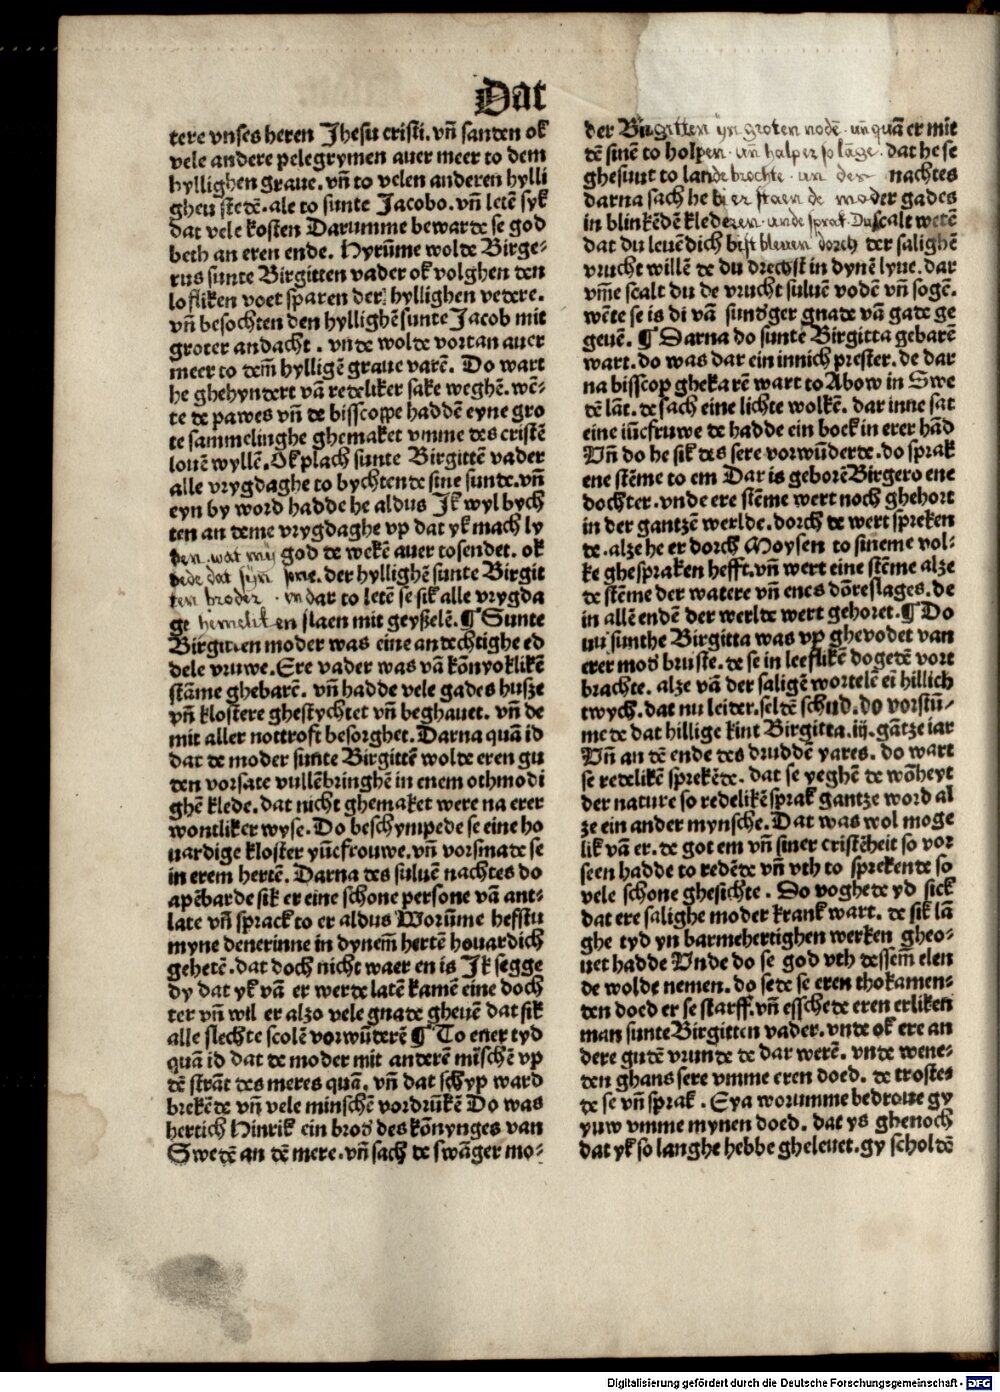 Dat
tere vnses heren Jhesu cristi. vn̄ santen ok
vele andere pelegrymen auer meer to dem
hyllighen graue. vn̄ to velen anderen hylli
ghen stedē. ale to sunte Jacobo. vn̄ letē syk
dat vele kosten Darumme bewarde se god
beth an eren ende. Hyrūme wolde Birge-
rus sunte Birgitten vader ok volghen den
lofliken voet sparen der hyllighen vedere.
vn̄ besochten den hyllighē sunte Jacob mit
groter andacht. vnde wolde vortan auer
meer to dem̄ hylligē graue varē. Do wart
he ghehyndert vā redeliker sake weghē. wē-
te de pawes vn̄ de bisscoppe haddē eyne gro
te sammelinghe ghemaket vmme des cristē
louē wyllē. Ok plach sunte Birgittē vader
alle vrygdaghe to bychtende sine sunde. vn̄
eyn by word hadde he aldus Jk wyl bych
ten an deme vrygdaghe vp dat yk mach ly
den. wat mij god de wekē auer tosendet. ok
dede dat sijn sone. der hyllighē sunte Birgit
ten broder. vn dar to letē se sik alle vrygda
ge hemeliken slaen mit geysselē. ¶ Sunte
Birgitten moder was eine andechtighe ed
dele vruwe. Ere vader was vā kōnyoklikē
stāme ghebarē. vn̄ hadde vele gades husze
vn̄ klostere ghestychtet vn̄ beghauet. vn̄ de
mit aller nottroft besorghet. Darna quā id
dat de moder sunte Birgittē wolde eren gu
den vorsate vullēbringhē in enem othmodi
ghē klede. dat nicht ghemaket were na erer
wontliker wyse. Do beschympede se eine ho
uardige kloster yūcfrouwe. vn̄ vorsmade se
in erem hertē. Darna des suluē nachtes do
apēbarde sik er eine schone persone vā ant-
late vn̄ sprack to er aldus Worūme hefstu
myne denerinne in dynem̄ hertē houardich
gehetē. dat doch nicht waer en is Jk segge
dy dat yk vā er werde latē kamē eine doch
ter vn̄ wil er alzo vele gnade gheuē dat sik
alle slechte scolē vorwūderē ¶ To ener tyd
quā id dat de moder mit anderē mīschē vp
dē strāt des meres quā. vn̄ dat schyp ward
brekēde vn̄ vele minschē vordrūkē Do was
hertich Hinrik ein brod des kōnynges van
Swedē an dē mere. vn̄ sach de swāger mo-
der Birgitten yn groten nodē. vn̄ quā er mit
dē sinē to holpen. vn̄ halp er so lāge. dat he se
ghesunt to lande brochte. vn des nachtes
darna sach he bi er staen de moder gades
in blinkēdē klederen. vnde sprak. Du scalt wetē
dat du leuēdich bist bleuen dorch der salighē
vrucht willē de du drechst in dynē lyue. dar
vm̄e scalt du de vrucht suluē vodē vn̄ sogē.
wēte se is di vā sundger gnade vā gade ge
geuē. ¶ Darna do sunte Birgitta gebarē
wart. do was dar ein innich prester. de dar
na bisscop ghekarē wart to Abow in Swe
dē lāt. de sach eine lichte wolkē. dar inne sat
eine iūcfruwe de hadde ein boek in erer hād
Vn̄ do he sik des sere vorwūderde. do sprak
ene stēme to em Dar is geborē Birgero ene
dochter. vnde ere stēme wert noch ghehort
in der gantzē werlde. dorch de wert spreken
de. alze he er dorch Moysen to sineme vol-
ke ghespraken hefft. vn̄ wert eine stēme alze
de stēme der watere vn̄ enes dōreslages. de
in allē endē der werlde wert gehoret. ¶ Do
nu sunthe Birgitta was vp ghevodet van
erer mod bruste. de se in leeflikē dogedē vort
brachte. alze vā der saligē wortelē ei hillich
twych. dat nu leider. seldē schud. do vorstū-
me de dat hillige kint Birgitta. iij. gātze iar
Vn̄ an dē ende des druddē yares. do wart
se redelikē sprekēde. dat se yeghē de wōheyt
der nature so redelikē sprak gantze word al
ze ein ander mynsche. Dat was wol moge
lik vā er. de got em vn̄ siner cristēheit so vor
seen hadde to redēde vn̄ vth to sprekende so
vele schone ghesichte. So voghede yd sick
dat ere salighe moder krank wart. de sik lā
ghe tyd yn barmehertighen werken gheo-
uet hadde Vnde do se god vth dessem̄ elen
de wolde nemen. do sede se eren thokamen-
den doed er se starff. vn̄ esschede eren erliken
man sunte Birgitten vader. vnde ok ere an
dere gudē vrunde de dar werē. vnde wene-
den ghans sere vmme eren doed. de trostes
de se vn̄ sprak. Eya worumme bedroue gy
yuw vmme mynen doed. dat ys ghenoch
dat yk so langhe hebbe gheleuet. gy scholdē
Digitalisierung gefördert durch die Deutsche Forschungsgemeinschaft - DFG